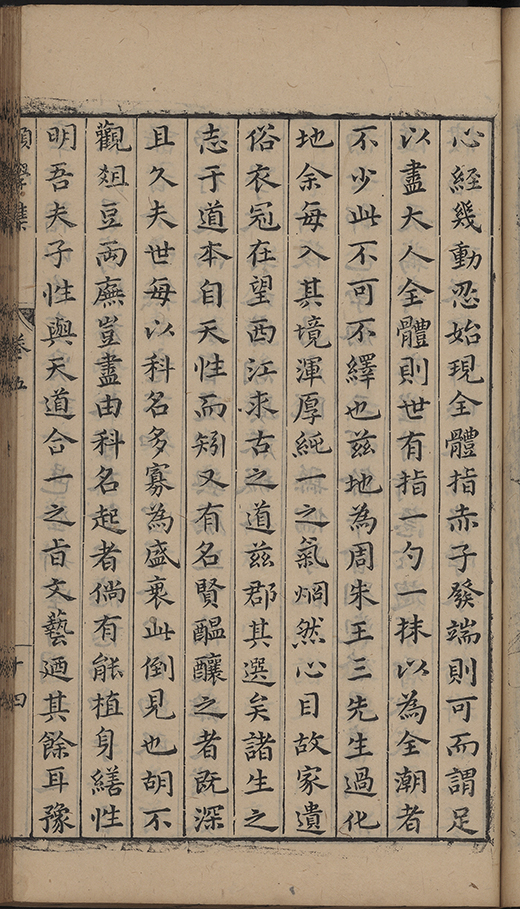 心經幾動忍始現全體指赤子發端則可而謂足
以盡大人全體則世有指一勺一抹以為全潮者
不少此不可不繹也茲地為周朱王三先生過化
地余每入其境渾厚純一之氣烱然心目故家遺
俗衣冠在望西江求古之道茲郡其選矣諸生之
志于道本自天性而矧又有名賢醞釀之者既深
且久夫世每以科名多寡為盛衰此倒見也胡不
觀俎豆兩廡豈盡由科名起者倘有能植身繕性
明吾夫子性與天道合一之旨文藝迺其餘耳豫
學集
卷五
十四